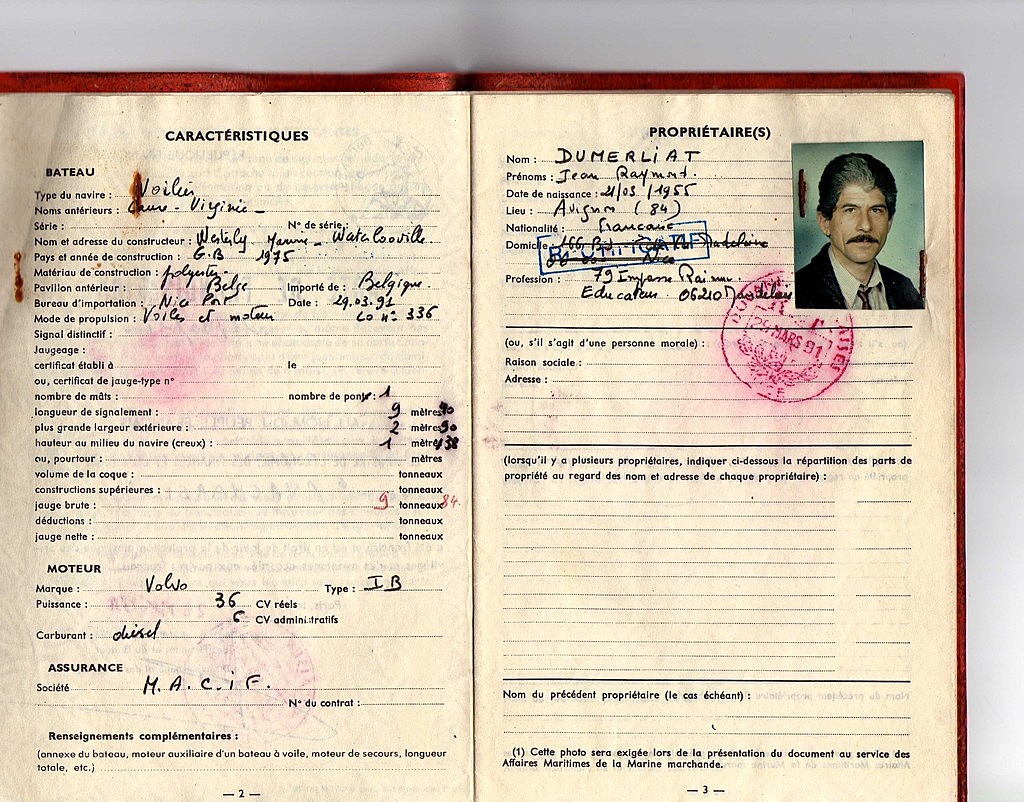 CARACTÉRISTIQUES
BATEAU
Type du navire : Voilier
Noms antérieurs : - Virginie -
Série : N° de série :
Nom et adresse du constructeur : Yarme - Waterlooville
Pays et année de construction : G.B 1975
Matériau de construction : polyester
Pavillon antérieur : Belge Importé de : Belgique.
Bureau d'importation : Nice Port Date : 29.03.91
Mode de propulsion : Voiles et moteur n° 336
Signal distinctif :
Jaugeage :
certificat établi à le
ou, certificat de jauge-type n°
nombre de mâts : nombre de ponts : 1
longueur de signalement : 9 mètres 70
plus grande largeur extérieure : 2 mètres 90
hauteur au milieu du navire (creux) : 1 mètre 38
ou, pourtour : mètres
volume de la coque : tonneaux
constructions supérieures : tonneaux
jauge brute : 9 tonneaux 84
déductions : tonneaux
jauge nette : tonneaux
MOTEUR
Marque : Volvo Type : IB
Puissance : 36 CV réels
6 CV administratifs
Carburant : diesel
ASSURANCE
Société M.A.C.i.F.
N° du contrat :
Renseignements complémentaires :
(annexe du bateau, moteur auxiliaire d'un bateau à voile, moteur de secours, longueur
totale, etc.)
— 2 —
PROPRIÉTAIRE(S)
Nom : DUMERLIAT
Prénoms : Jean Raymond.
Date de naissance : 21/03/1955
Lieu : Avignon (84)
Nationalité : francaise
Domicile : 166, Bd Mandelieu
Profession : 79 Impasse
Educateur 06210 Mandelieu
29 MARS 91
(ou, s'il s'agit d'une personne morale) :
Raison sociale :
Adresse :
(lorsqu'il y a plusieurs propriétaires, indiquer ci-dessous la répartition des parts de
propriété au regard des nom et adresse de chaque propriétaire) :
Nom du précédent propriétaire (le cas échéant) :
(1) Cette photo sera exigée lors de la présentation du document au service des
Affaires Maritimes de la Marine marchande.
— 3 —